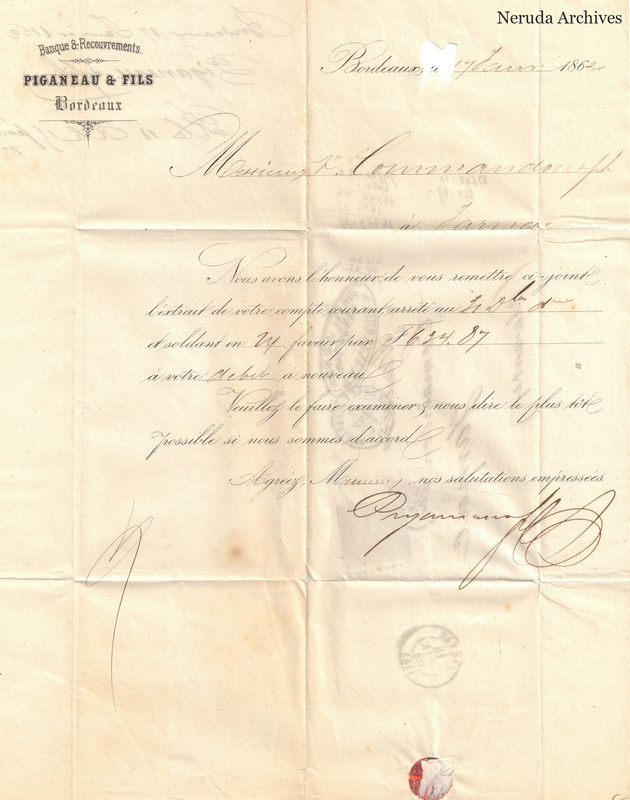 Neruda Archives
Banque & Recouvrements.
PIGANEAU & FILS
Bordeaux
Bordeaux, 17 1862
Messieurs Commandon
à Jarnac
Nous avons l'honneur de vous remettre ci-joint
l'extrait de votre compte courant, arrêté au 31
et soldant en faveur par F 634.87
à votre debit à nouveau
Veuillez le faire examiner & nous dire le plus tôt
possible si nous sommes d'accord
Agréez, nos salutations empressées